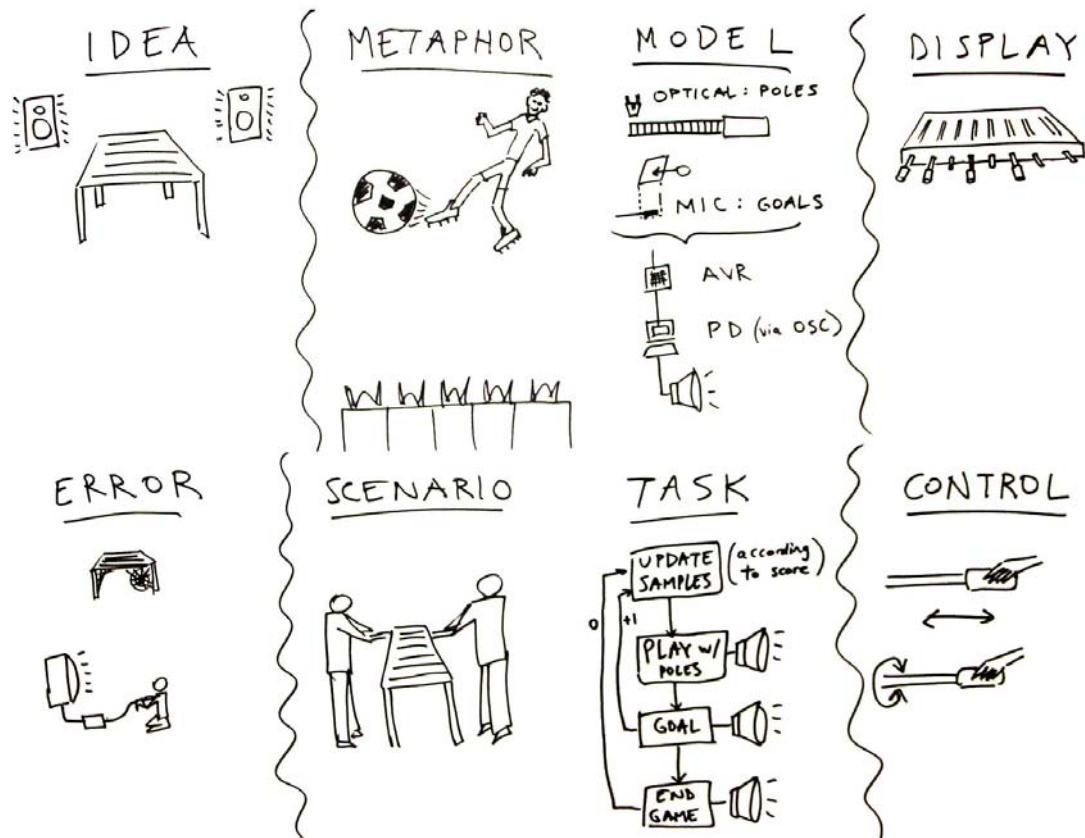 IDEA
METAPHOR
MODEL
OPTICAL: POLES
MIC: GOALS
AVR
PD (via OSC)
DISPLAY
ERROR
SCENARIO
TASK
UPDATE
SAMPLES
(according
to score)
0
+1
PLAY w/
POLES
GOAL
END
GAME
CONTROL